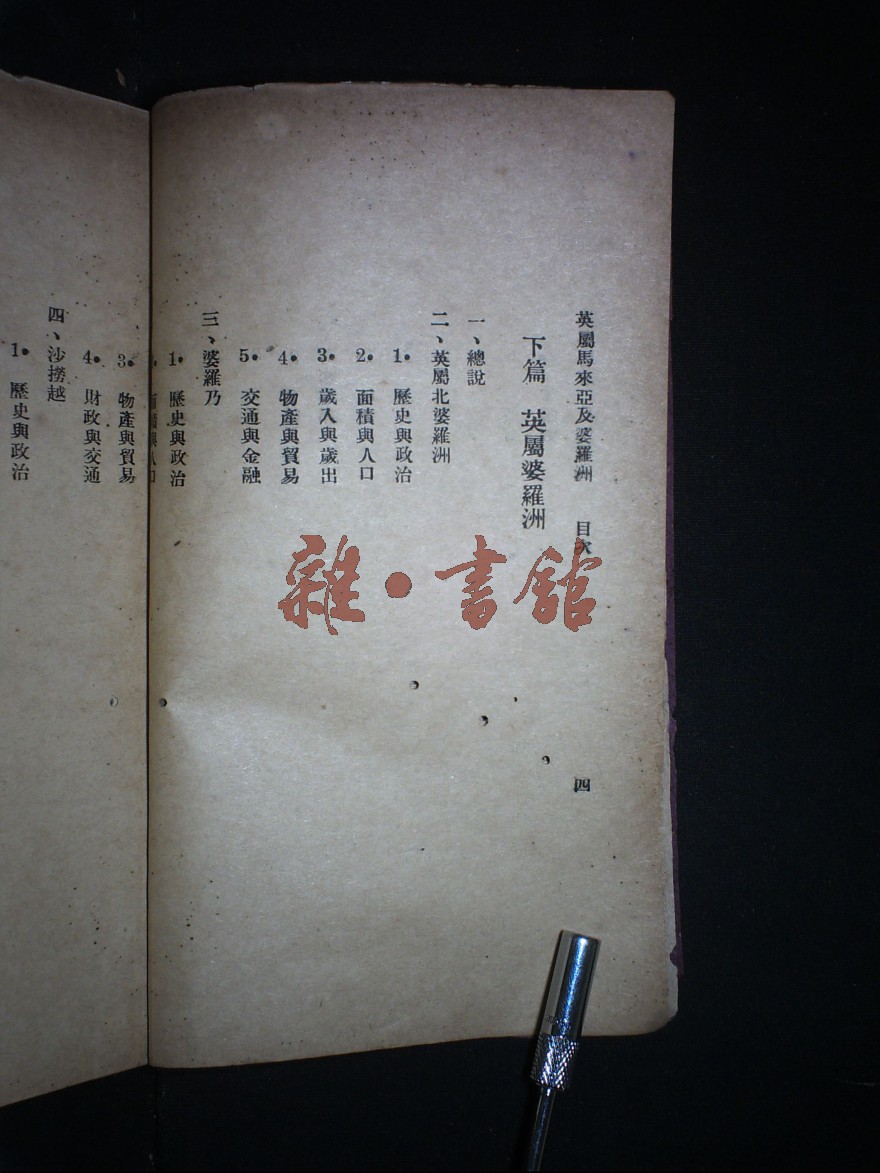 英屬馬來亞及婆羅洲 目次
四
下篇 英屬婆羅洲
一、總說
二、英屬北婆羅洲
1. 歷史與政治
2. 面積與人口
3. 歲入與歲出
4. 物產與貿易
5. 交通與金融
三、婆羅乃
1. 歷史與政治
面積與人口
3. 物產與貿易
4. 財政與交通
四、沙撈越
1. 歷史與政治
雜·書館